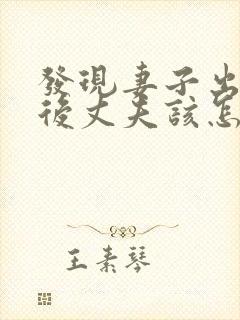 發現妻子出
後丈夫該怎
王素琴